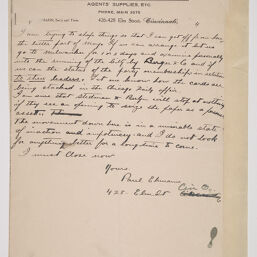 AGENTS' SUPPLIES, ETC.
PHONE, MAIN 2075
426-428 Elm Street, Cincinnati,
I am trying to shape things so that I can get off from here
the latter part of May. If we can arrange it let us
go to Milwaukee for
into the running of the city by Berger & Co and if
we can the status of the party membership in relation
to these leaders. Let me know how the cards are
being stacked in the Chicago Daily affair.
I am sure that Stedman & Berlyn will stop at nothing
if they see an opening to use the paper as a
asset.
The movement down here is in a miserable state
of inaction and impotency and I do not look
for anything better for a long time to come.
I must close now
Yours,
Paul Ehmann
428 Elm St Cin O.